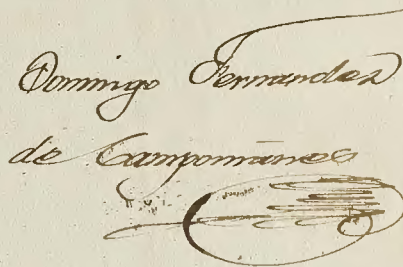 Domingo Fernandez
de Campomanes